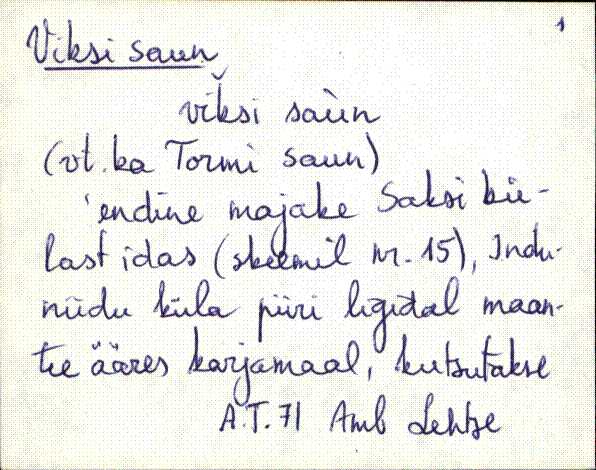 1
Viksi saun
vĭksi saùn
(vt. ka Tormi saun)
'endine majake Saksi kü-
last idas (skeemil nr. 15), Indu-
niidu küla piiri ligidal maan-
tee ääres karjamaal, kutsutakse
A.T. 71 Amb Lehtse